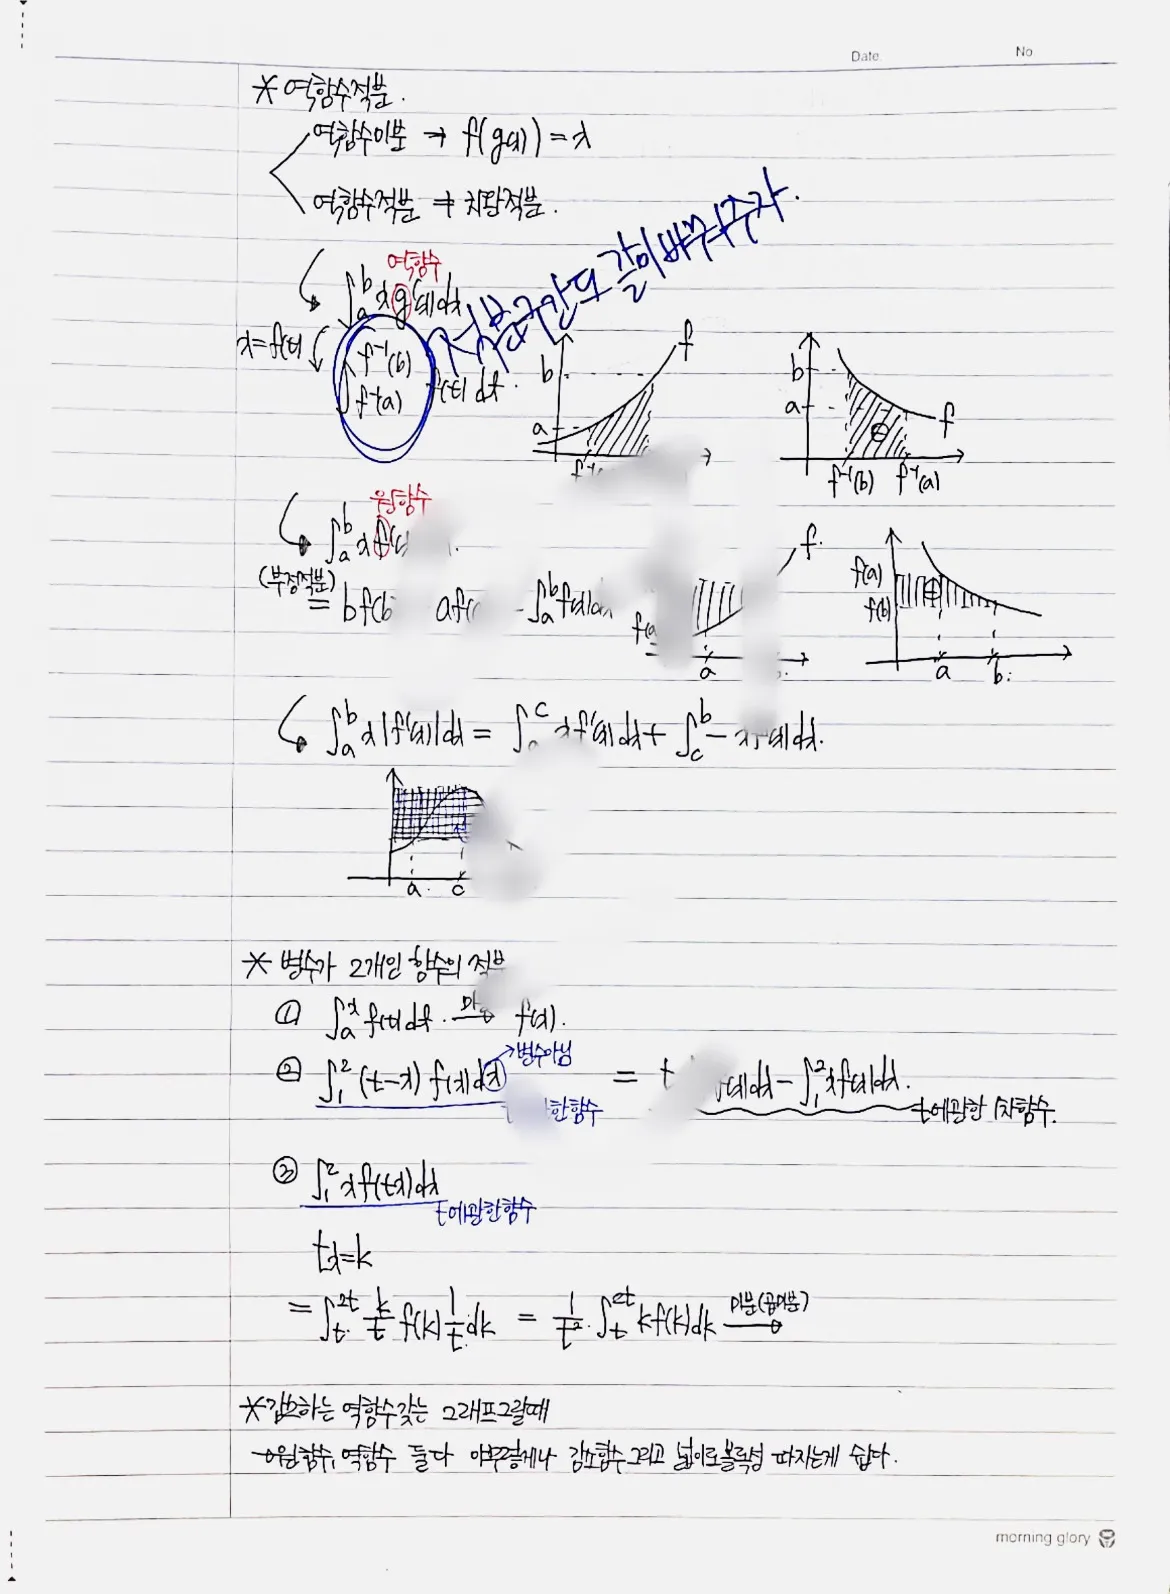 Date.
No
* 역함수적분.
역함수미분 → f(g(x)) = x
역함수적분 → 치환적분.
적분구간도 같이 바꿔주자.
역함수
∫_a^b x g'(x)dx
x=f(t)
∫_{f⁻¹(a)}^{f⁻¹(b)} f(t)dt.
b
a
f
b
a
f
f⁻¹(b) f⁻¹(a)
원함수
∫_a^b x f'(x)
(부정적분)
= bf(b) af( - ∫_a^b f(x)dx
f.
a
f(a)
f(b)
a b.
∫_a^b x|f'(x)|dx = ∫^c x f'(x)dx + ∫_c^b - xf'(x)dx.
a. c
* 변수가 2개인 함수의 적분
① ∫_a^x f(t)dt. → f(x).
② ∫_1^2 (t-x) f(x)dx = t f(x)dx - ∫_1^2 xf(x)dx.
변수아님
한함수
t에관한 1차함수.
③ ∫_1^2 x f(tx)dx
t에관한함수
tx=k
= ∫_t^{2t} k/t f(k) 1/t dk = 1/t² · ∫_t^{2t} kf(k)dk 미분(곱미분) →
* 감소하는 역함수갖는 그래프그릴때
→ 원함수, 역함수 둘다 아무렇게나 감소함수그리고 넓이로볼록성 따지는게 쉽다.
morning glory